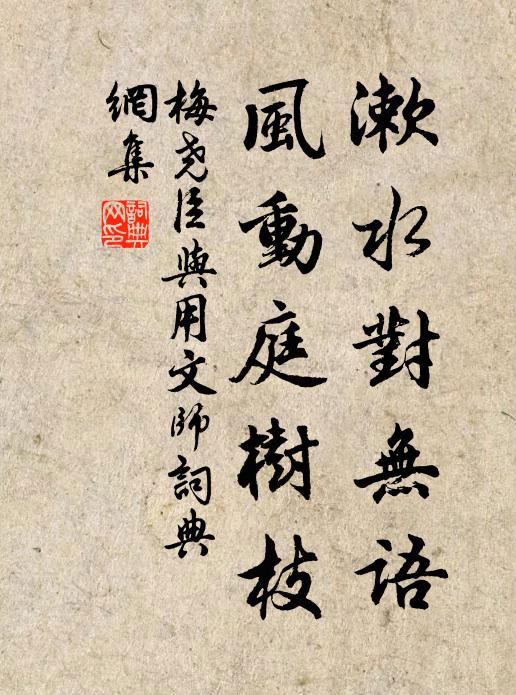 漱水對無語
風動庭樹枝
梅尧臣與用文師詞典
網集
詞典
网印